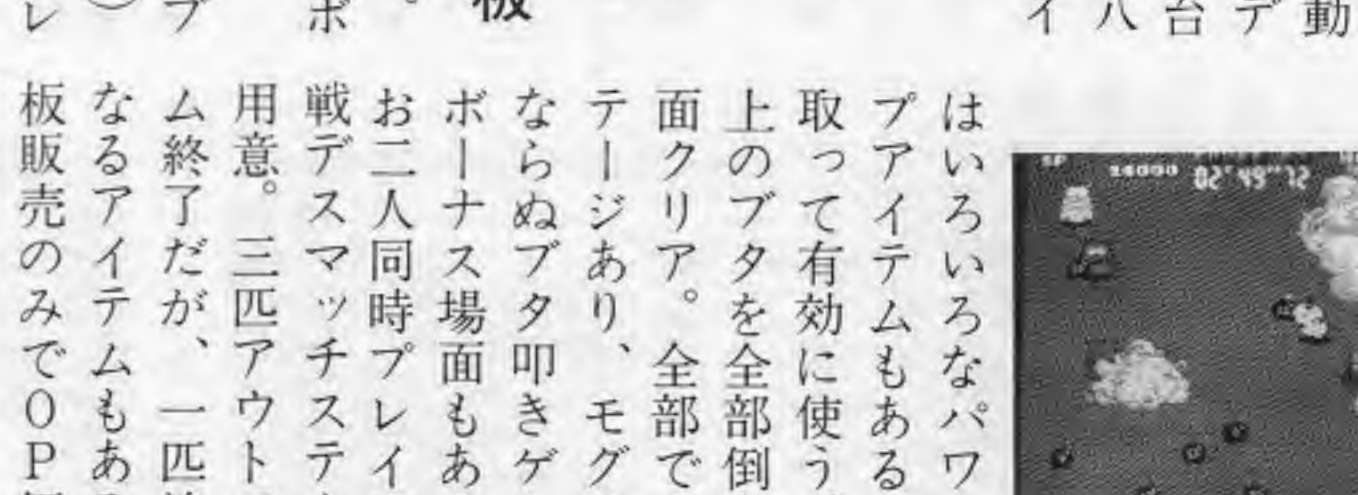 動
デ
台
八
イ
板
ボ
。
プ
レ
はいろいろなパワ
プアイテムもある
取って有効に使う
上のブタを全部倒
面クリア。全部で
テージあり、モグ
ならぬブタ叩きゲ
ボーナス場面もあ
お二人同時プレイ
戦デスマッチステ
用意。三匹アウト
ム終了だが、一匹
なるアイテムもあ
板販売のみでOP
24000 02'49"12